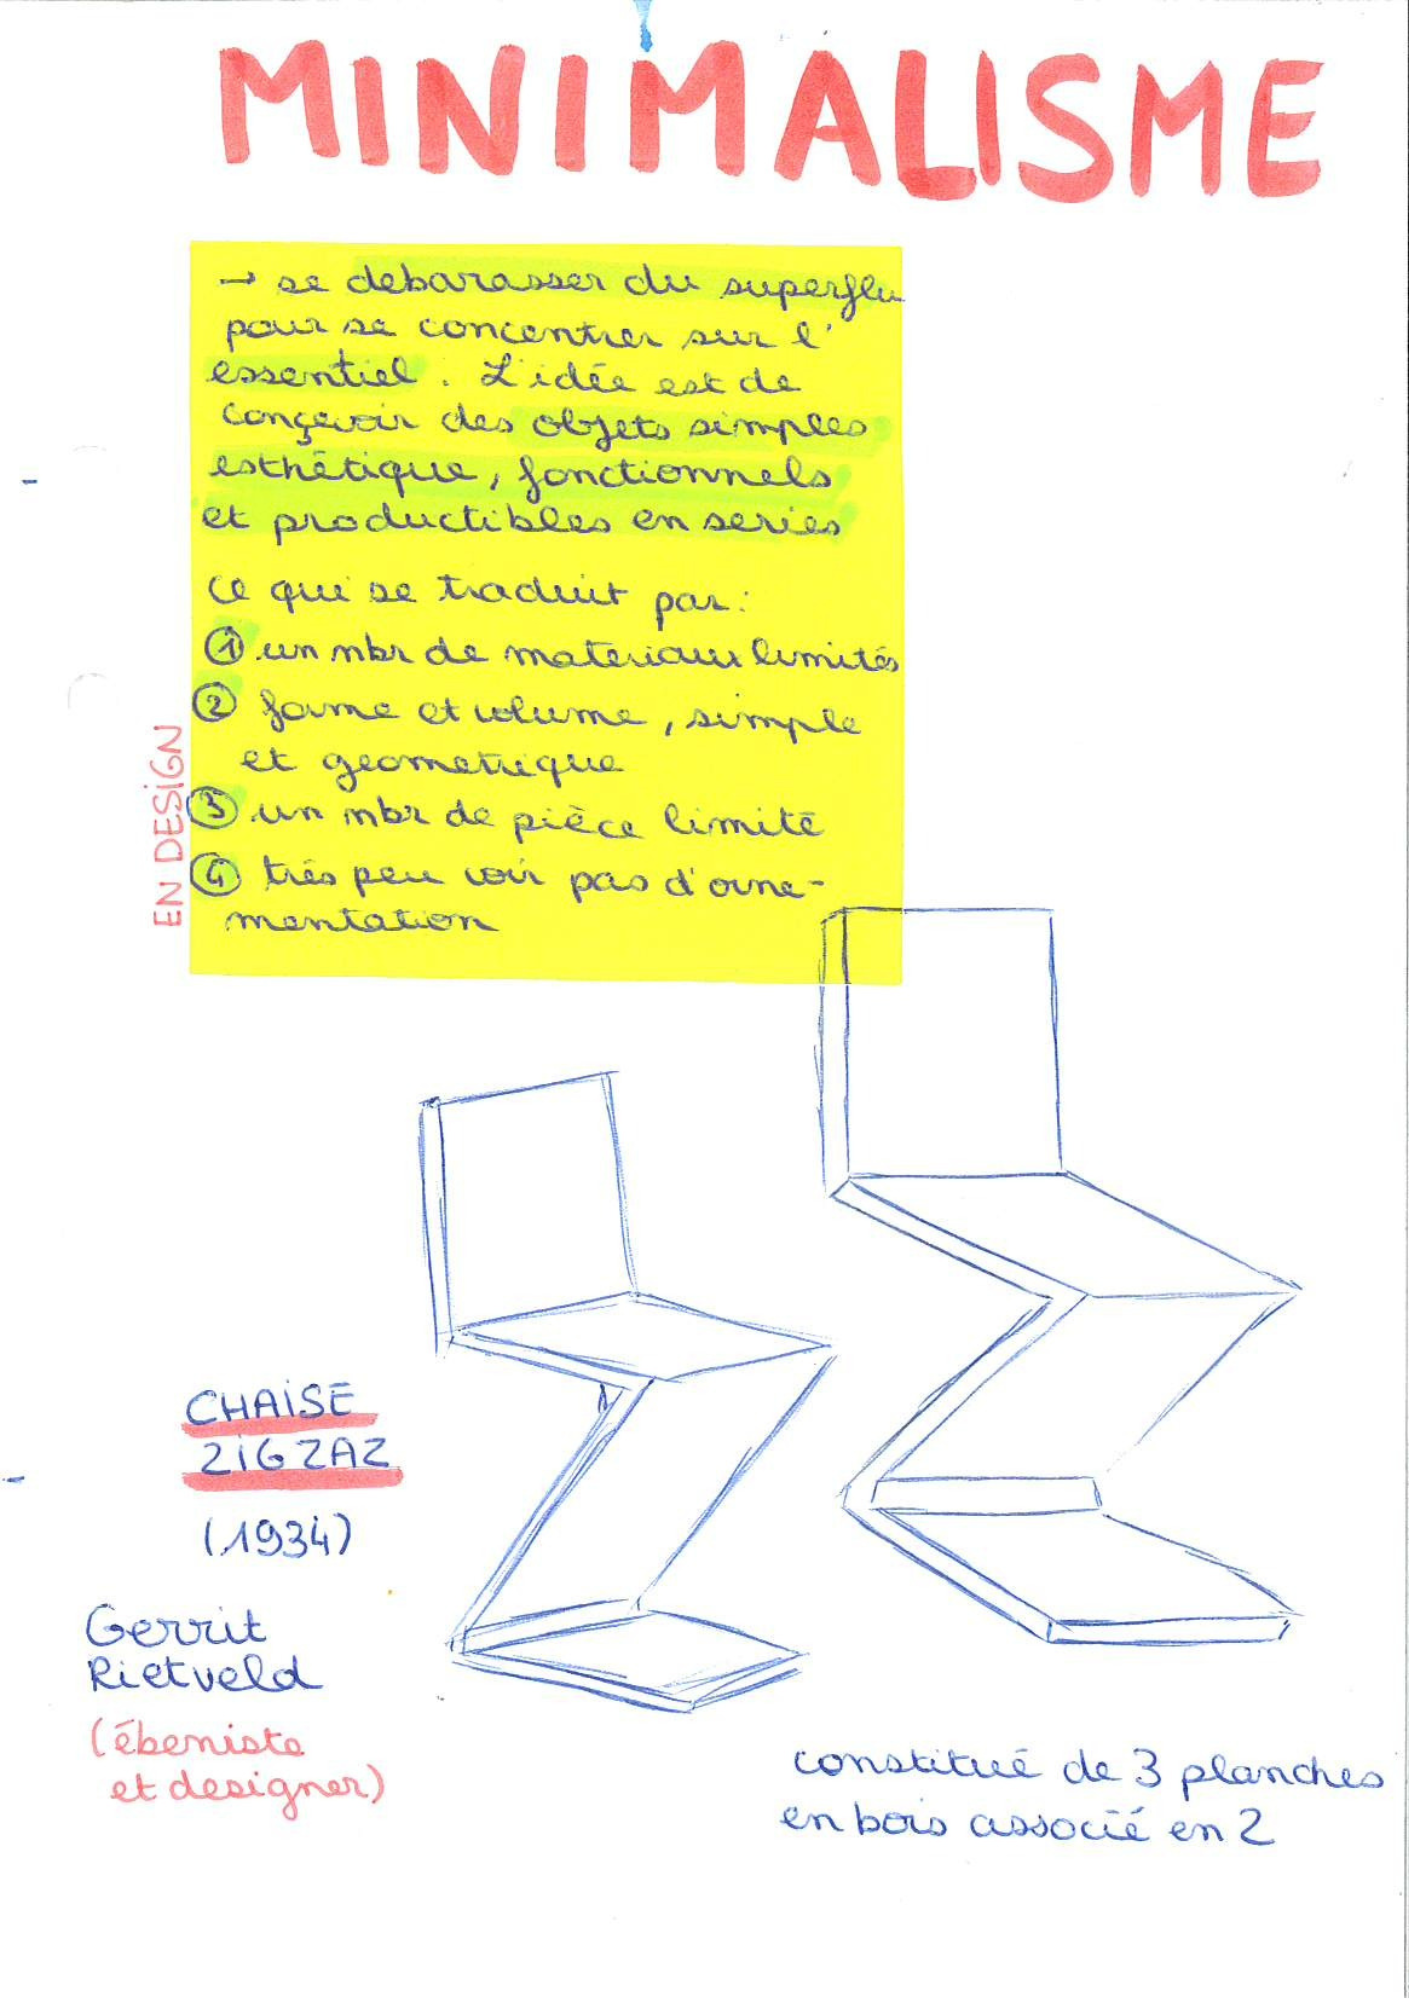 MINIMALISME
→ se debarasser du superflu
pour se concentrer sur l'
essentiel. L'idée est de
conçevoir des objets simples
esthétique, fonctionnels
et productibles en series
Ce qui se traduit par :
① un nbr de materiaux limités
② forme et volume, simple
et geometrique
③ un nbr de pièce limité
④ très peu voir pas d'orne-
mentation
EN DESIGN
CHAISE
ZIGZAZ
(1934)
Gerrit
Rietveld
(ébeniste
et designer)
constitué de 3 planches
en bois associé en Z